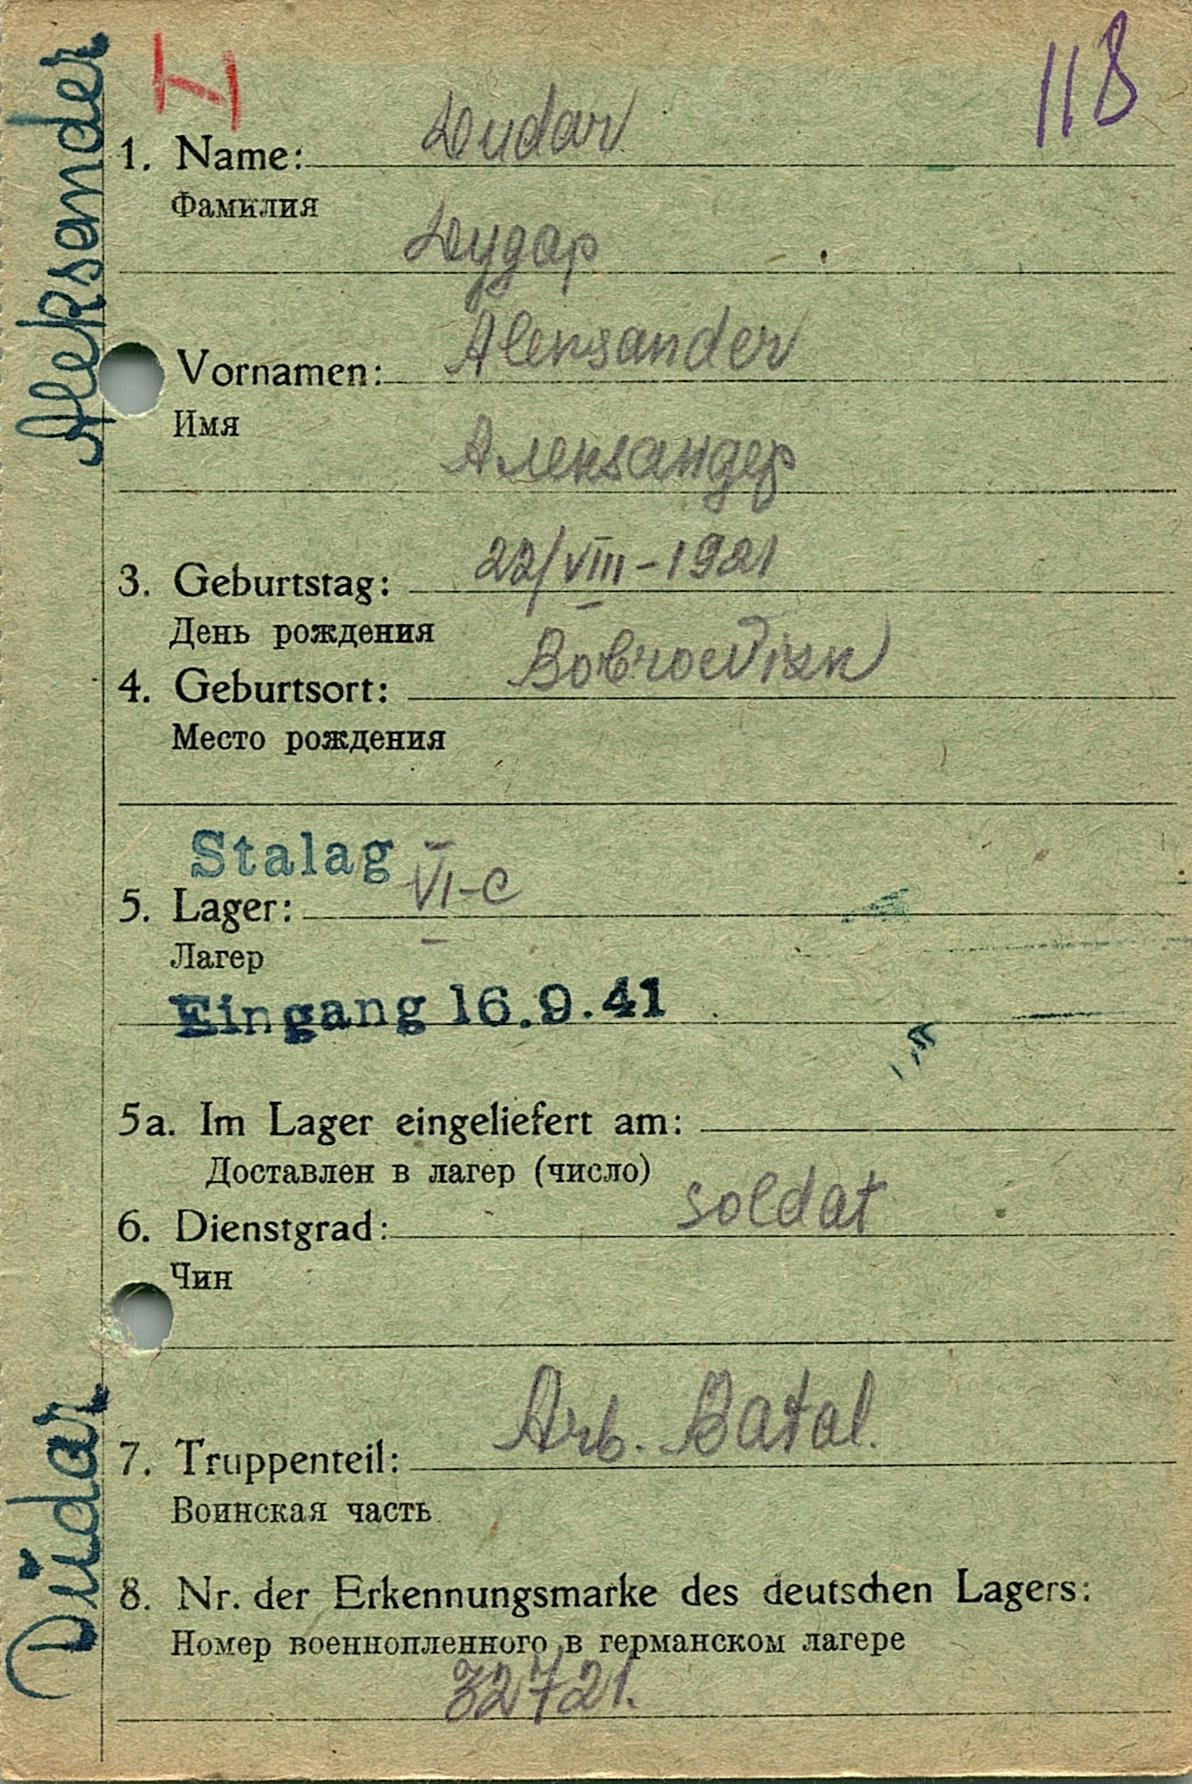 118
1. Name: Dudar
Фамилия
Дудар
Vornamen: Aleksander
Имя
Александер
3. Geburtstag: 22/VIII-1921
День рождения
4. Geburtsort:
Место рождения
Stalag VI-C
5. Lager:
Лагер
Eingang 16.9.41
5a. Im Lager eingeliefert am:
Доставлен в лагер (число)
6. Dienstgrad: soldat
Чин
7. Truppenteil: Arb. Batal.
Воинская часть
8. Nr. der Erkennungsmarke des deutschen Lagers:
Номер военнопленного в германском лагере
32721.
Dudar
Aleksander